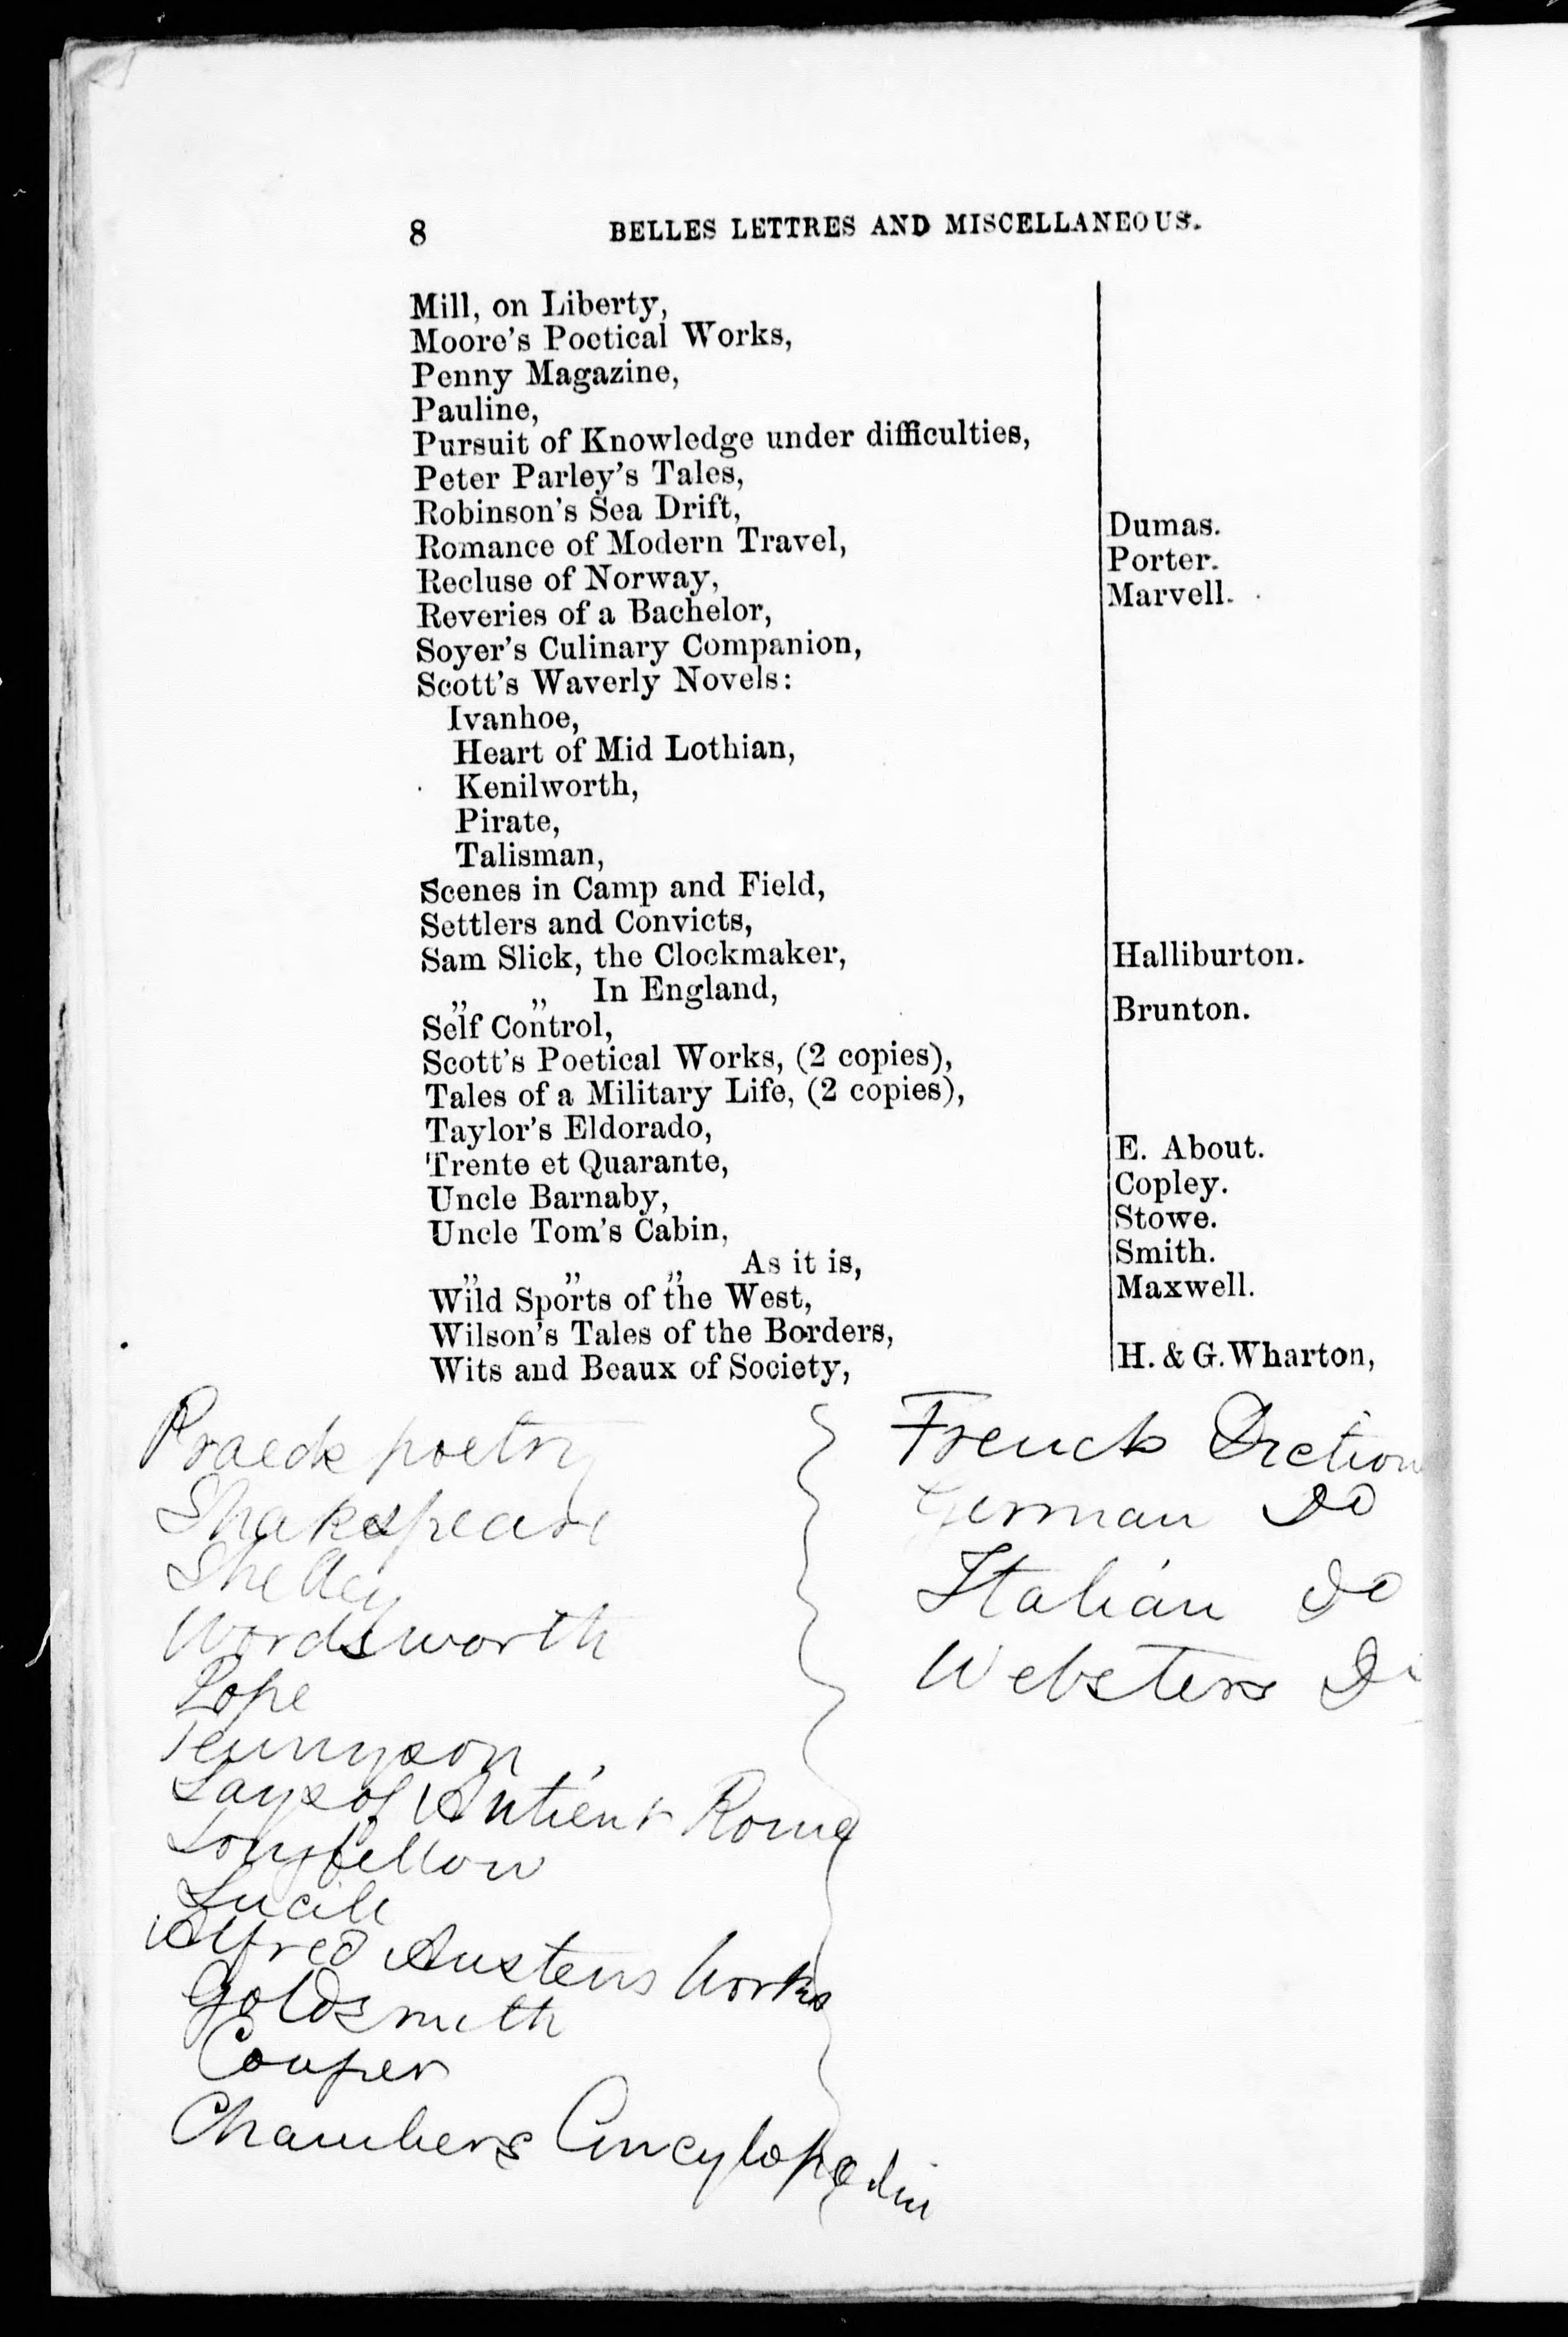 8 BELLES LETTRES AND MISCELLANEOUS.
Mill, on Liberty,
Moore's Poetical Works,
Penny Magazine,
Pauline,
Pursuit of Knowledge under difficulties,
Peter Parley's Tales,
Robinson's Sea Drift,
Romance of Modern Travel, Dumas.
Recluse of Norway, Porter.
Reveries of a Bachelor, Marvell.
Soyer's Culinary Companion,
Scott's Waverly Novels:
Ivanhoe,
Heart of Mid Lothian,
Kenilworth,
Pirate,
Talisman,
Scenes in Camp and Field,
Settlers and Convicts,
Sam Slick, the Clockmaker, Halliburton.
„ „ In England,
Self Control, Brunton.
Scott's Poetical Works, (2 copies),
Tales of a Military Life, (2 copies),
Taylor's Eldorado,
Trente et Quarante, E. About.
Uncle Barnaby, Copley.
Uncle Tom's Cabin, Stowe.
„ „ „ As it is, Smith.
Wild Sports of the West, Maxwell.
Wilson's Tales of the Borders,
Wits and Beaux of Society, H. & G. Wharton,
Praeds poetry
Shakspeare
Shelley
Wordsworth
Pope
Tennyson
Lays of Antient Rome
Longfellow
Lucile
Alfred Austens Works
Goldsmith
Couper
Chambers Encylopedia
French Diction
German Do
Italian Do
Websters Di